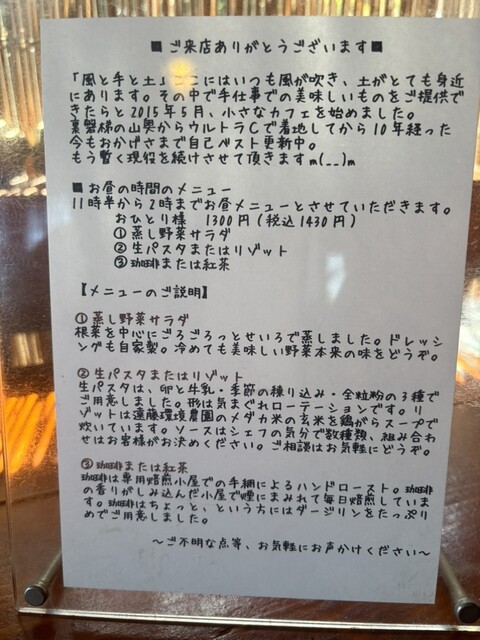 ■ご来店ありがとうございます■
「風と手と土」ここにはいつも風が吹き、土がとても身近
にあります。その中で手仕事での美味しいものをご提供で
きたらと2015年5月、小さなカフェを始めました。
裏磐梯の山奥からウルトラCで着地してから10年経った
今もおかげさまで自己ベスト更新中。
もう暫く現役を続けさせて頂きますm(__)m
■お昼の時間のメニュー
11時半から2時までお昼メニューとさせていただきます。
おひとり様 1300円(税込1430円)
①蒸し野菜サラダ
②生パスタまたはリゾット
③珈琲または紅茶
【メニューのご説明】
①蒸し野菜サラダ
根菜を中心にごろごろっとせいろで蒸しました。ドレッシ
ングも自家製。冷めても美味しい野菜本来の味をどうぞ。
②生パスタまたはリゾット
生パスタは、卵と牛乳・季節の練り込み・全粒粉の3種で
ご用意しました。形は気まぐれローテーションです。リ
ゾットは遠藤環境農園のメダカ米の玄米を鶏がらスープで
炊いています。ソースはシェフの気分で数種類、組み合わ
せはお客様がお決めください。ご相談はお気軽にどうぞ。
③珈琲または紅茶
珈琲は専用焙煎小屋での手網によるハンドロースト。珈琲
の香りがしみ込んだ小屋で煙にまみれて毎日焙煎していま
す。珈琲はちょっと、という方にはダージリンをたっぷり
めでご用意しました。
～ご不明な点等、お気軽にお声かけください～